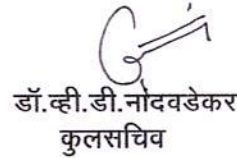 डॉ.व्ही.डी.नांदवडेकर
कुलसचिव